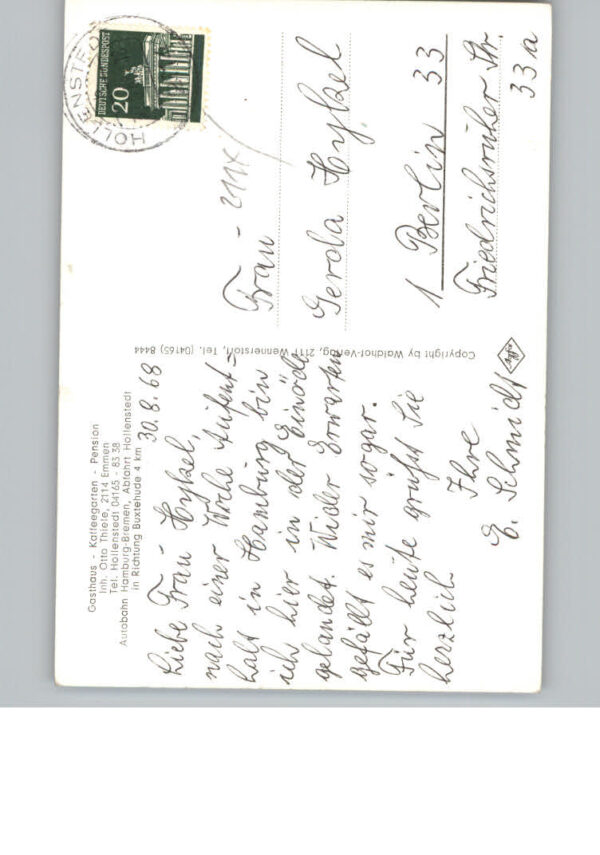 Gasthaus - Kaffeegarten - Pension
Inh. Otto Thiele, 2114 Emmen
Tel. Hollenstedt 04165 - 83 38
Autobahn Hamburg-Bremen, Abfahrt Hollenstedt
in Richtung Buxtehude 4 km
30.8.68
Liebe Frau Hykel,
nach einer Woche Aufent=
halt in Hamburg bin
ich hier in der Einöde
gelandet. Wider Erwarten
gefällt es mir sogar.
Für heute grüßt Sie
herzlich
Ihre
E. Schmidt
Copyright by Waldhof-Verlag, 2111 Wennerstorf, Tel. (04165) 8444
Agfa
HOLLENSTEDT
DEUTSCHE BUNDESPOST
20
2114
Frau
Gerola Hykel
1 Berlin 33
Friedrichsruher Str.
33a